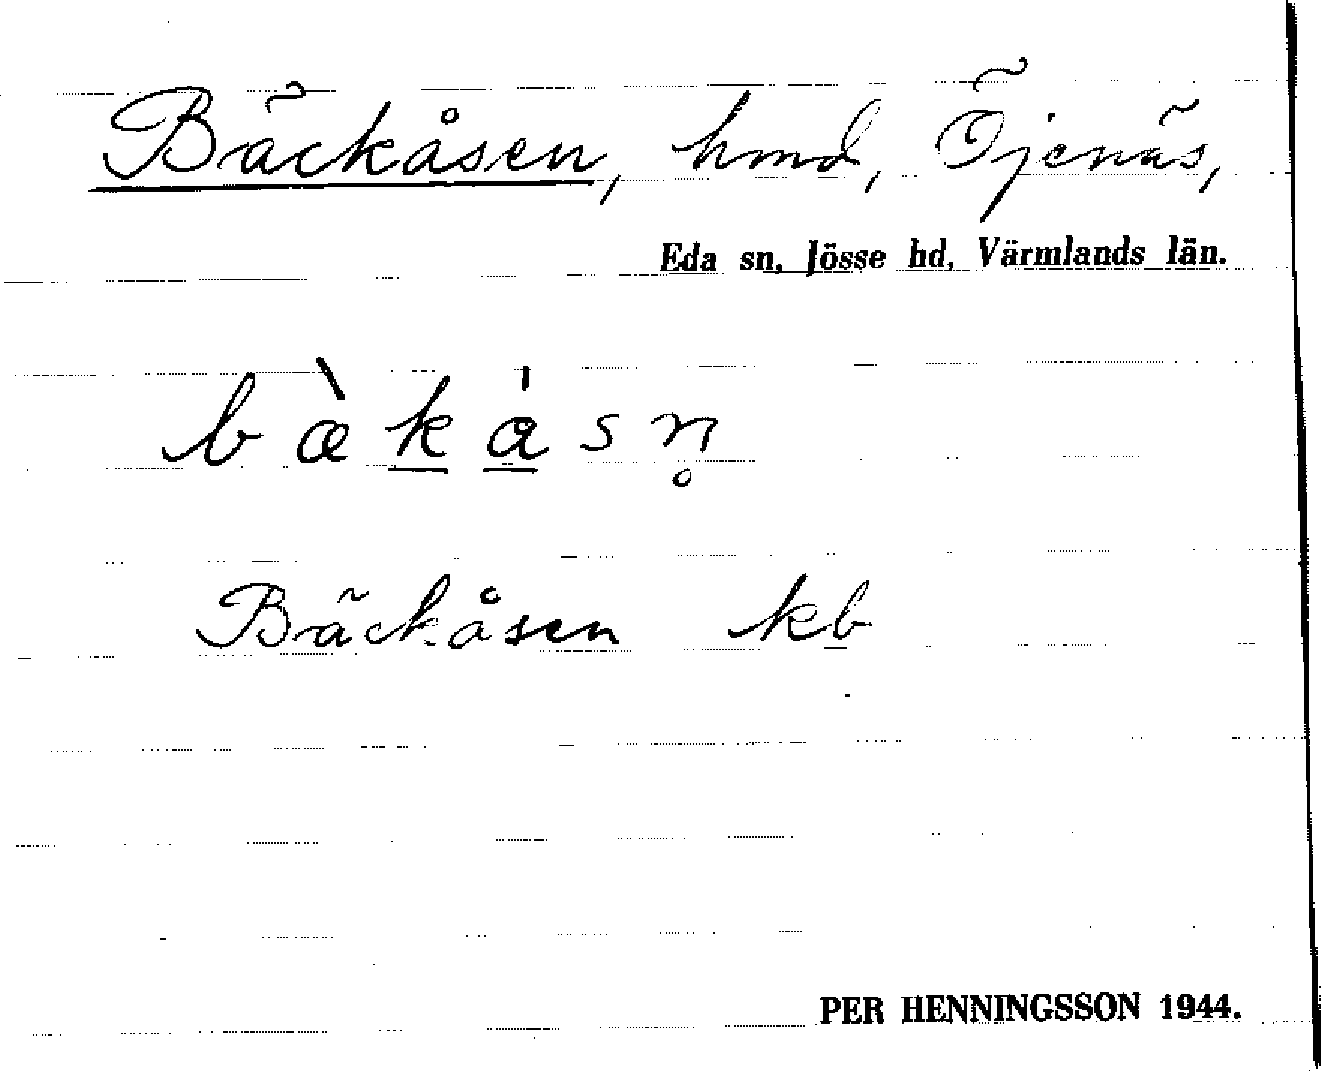 Bäckåsen, hmd, Öjenäs,
Eda sn, Jösse hd, Värmlands län.
bæ̀kåsn̥
Bäckåsen kb
PER HENNINGSSON 1944.